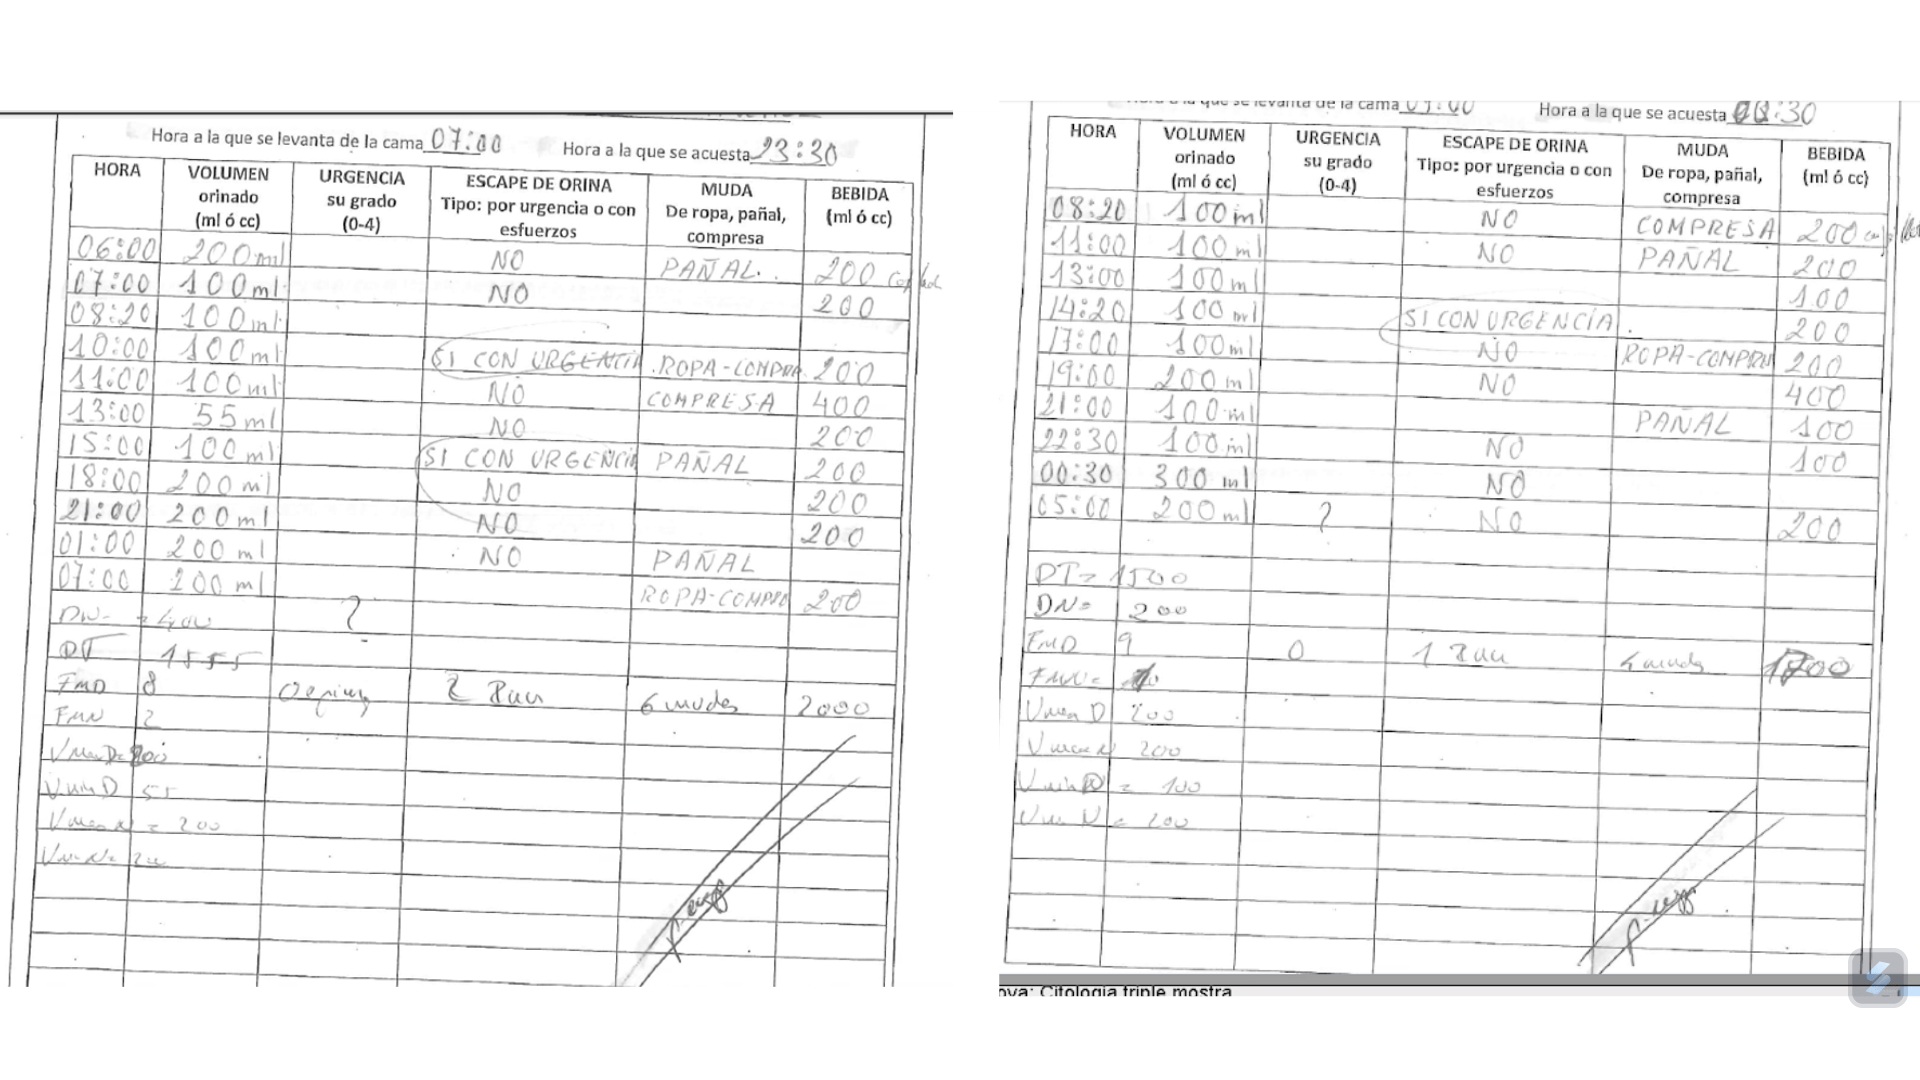 Hora a la que se levanta de la cama 07:00 Hora a la que se acuesta 23:30
HORA VOLUMEN orinado (ml ó cc) URGENCIA su grado (0-4) ESCAPE DE ORINA Tipo: por urgencia o con esfuerzos MUDA De ropa, pañal, compresa BEBIDA (ml ó cc)
06:00 200 ml NO PAÑAL 200
07:00 100 ml NO 200
08:20 100 ml
10:00 100 ml SI CON URGENCIA ROPA-COMPRE 200
11:00 100 ml NO COMPRESA 400
13:00 55 ml NO 200
15:00 100 ml SI CON URGENCIA PAÑAL 200
18:00 200 ml NO 200
21:00 200 ml NO 200
01:00 200 ml NO PAÑAL
07:00 200 ml ROPA-COMPRE 200
DN = 400 ?
DT 1555
FMD 8 2 6 mudas 2000
FMN 2
VmaxD=
VminD 55
VmaxN = 200
VminN=
Hora a la que se levanta de la cama Hora a la que se acuesta 00:30
HORA VOLUMEN orinado (ml ó cc) URGENCIA su grado (0-4) ESCAPE DE ORINA Tipo: por urgencia o con esfuerzos MUDA De ropa, pañal, compresa BEBIDA (ml ó cc)
08:20 100 ml NO COMPRESA 200
11:00 100 ml NO PAÑAL 200
13:00 100 ml 100
14:20 100 ml SI CON URGENCIA 200
17:00 100 ml NO ROPA-COMPRE 200
19:00 200 ml NO 400
21:00 100 ml PAÑAL 100
22:30 100 ml NO 100
00:30 300 ml NO
05:00 200 ml ? NO 200
DT= 1500
DN= 200
FMD 9 0 1 mudas
FMN=
VmaxD 200
VmaxN 200
VminD = 100
VminN = 200
ova: Citologia triple mostra